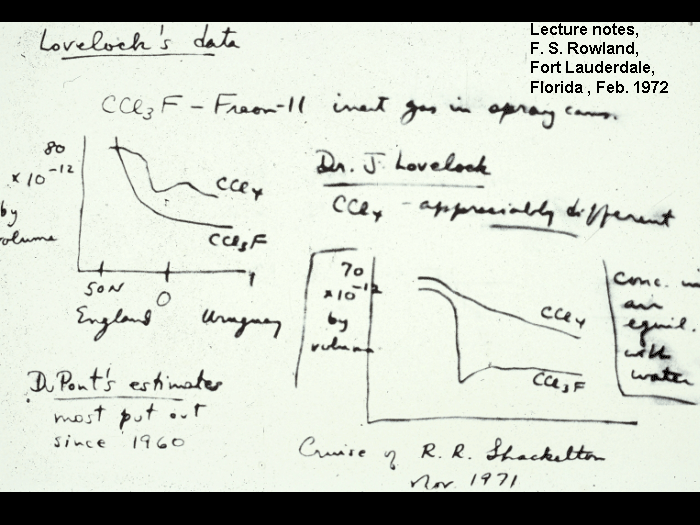 Lecture notes,
F. S. Rowland,
Fort Lauderdale,
Florida , Feb. 1972
Lovelock's data
CCl3F - Freon-11 inert gas in spray cans.
80
x 10-12
by
volume
CCl4
CCl3F
50N
0
England Uruguay
Dr. J Lovelock
CCl4 - appreciably different
70
x10-12
by
volume
CCl4
CCl3F
conc. in
air
equil.
with
water
DuPont's estimates
most put out
since 1960
Cruise of R. R. Shackelton
Nov. 1971